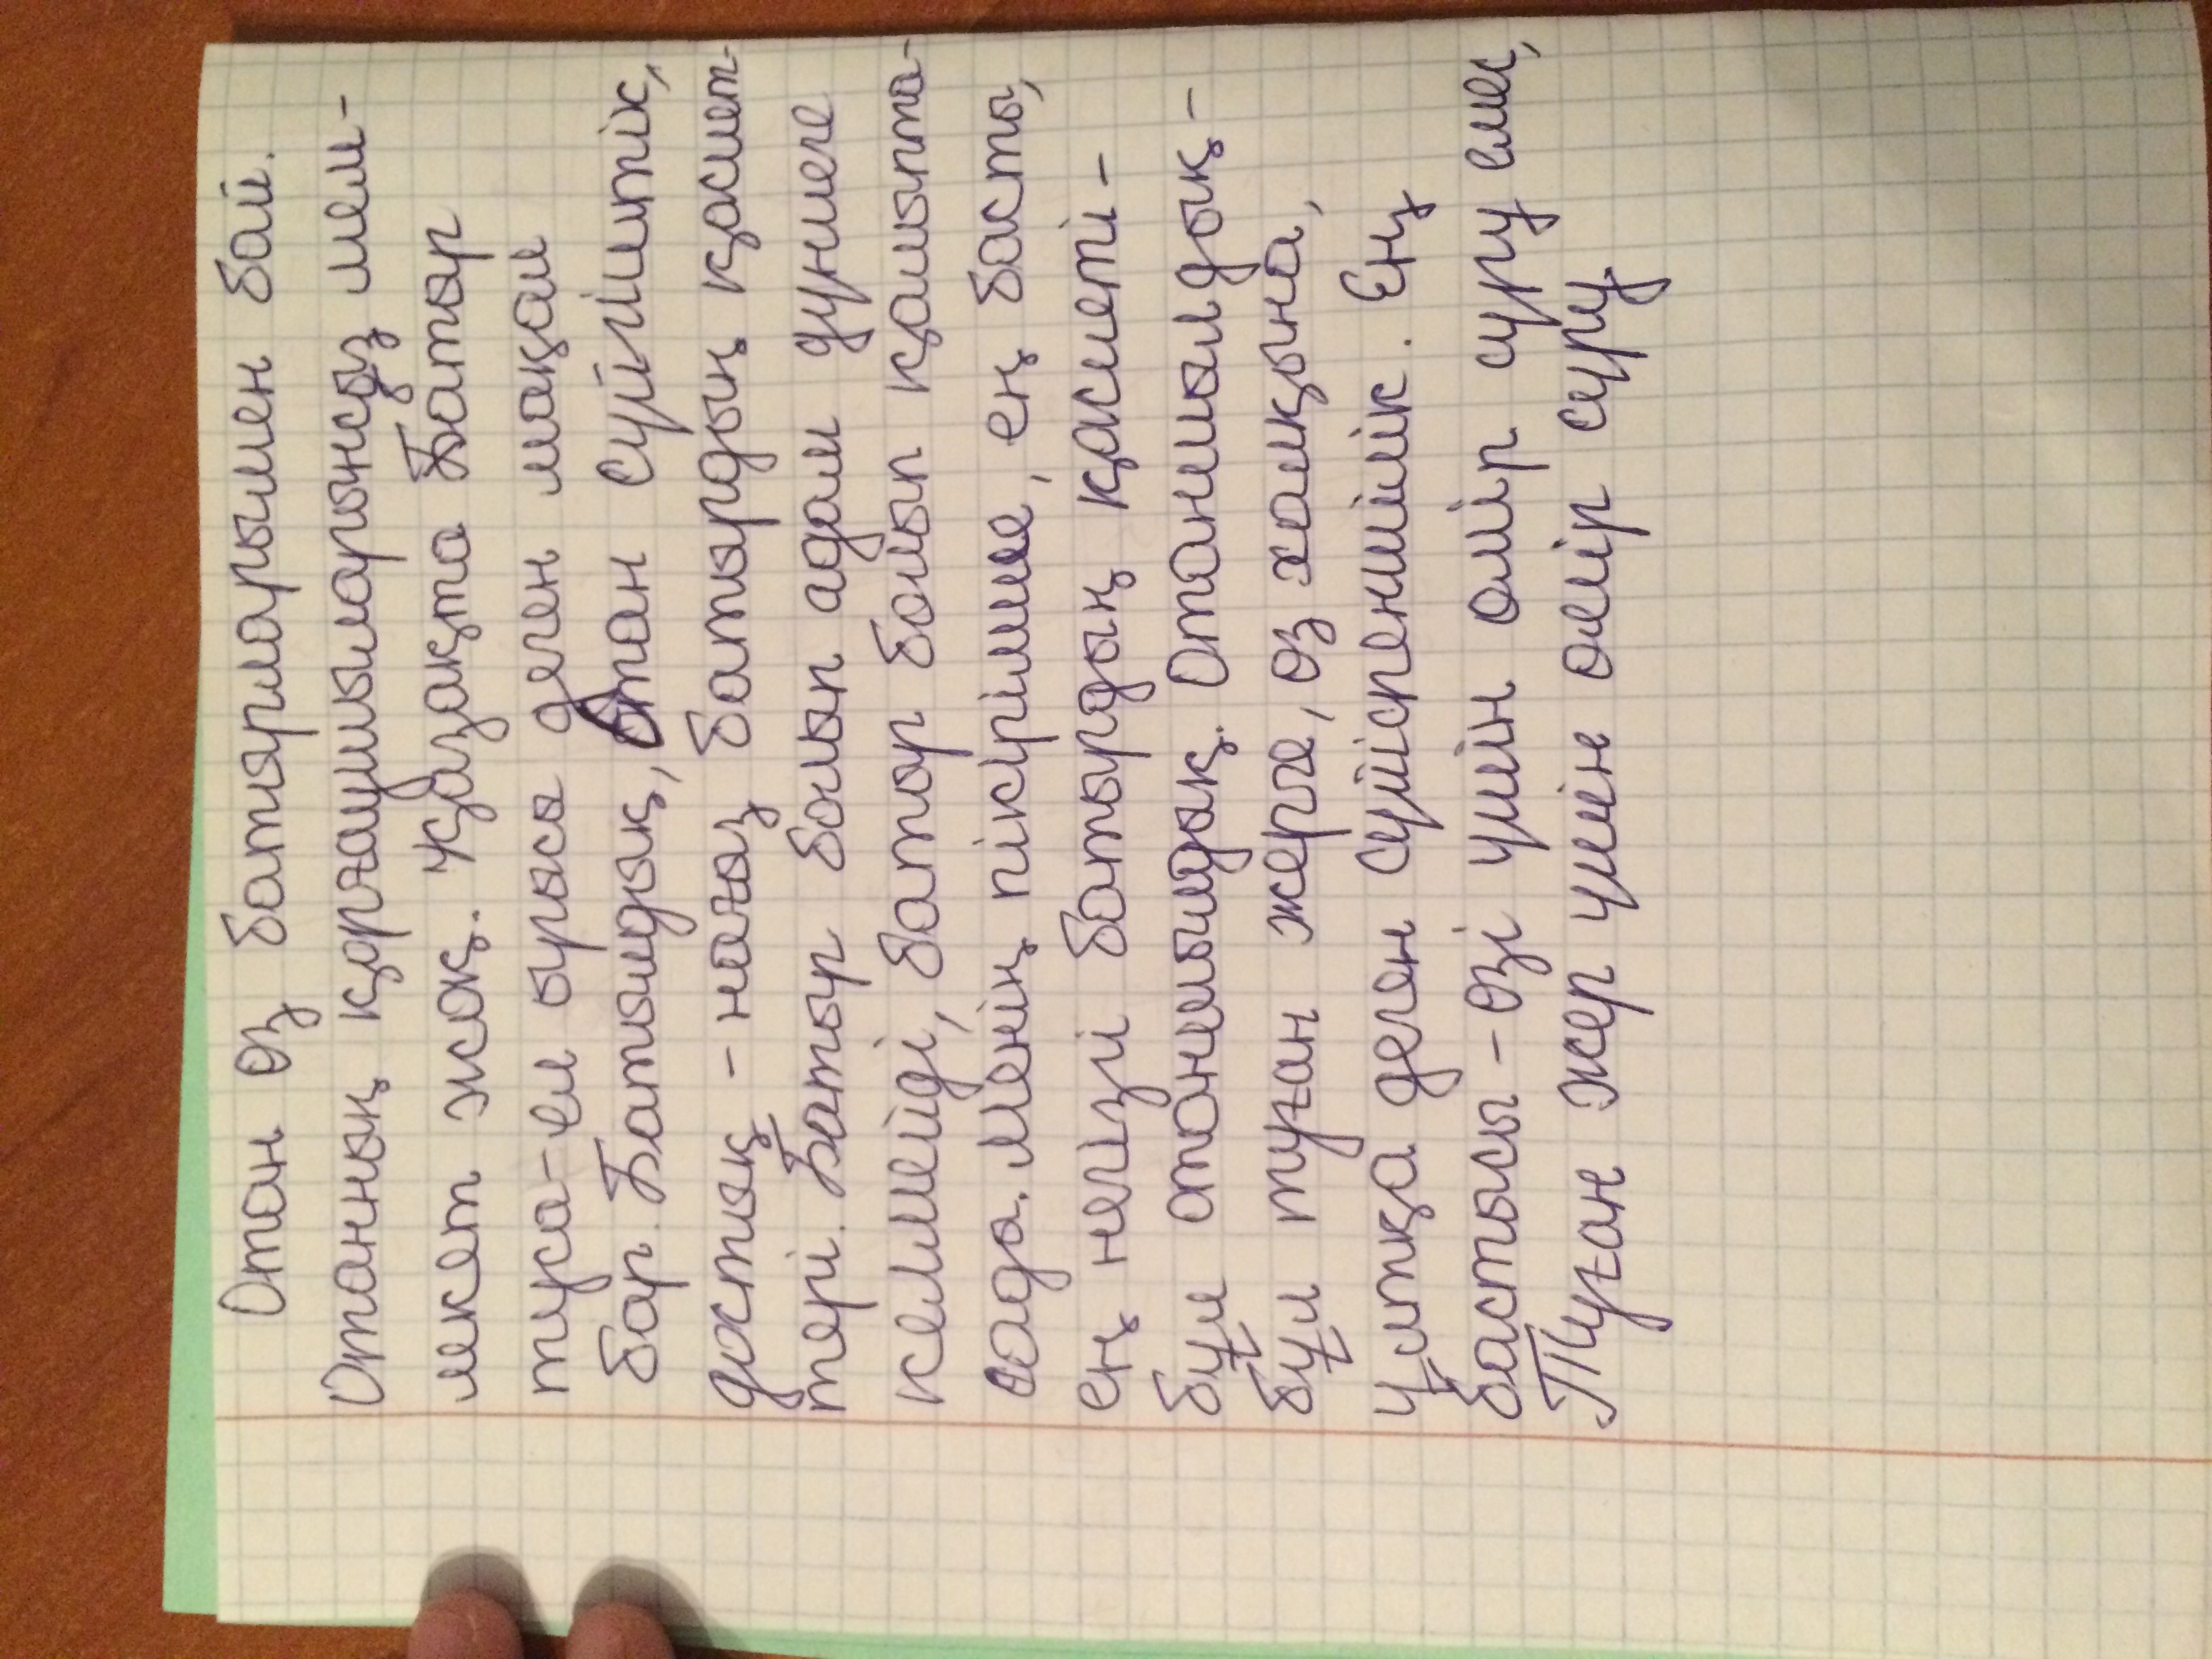 Отан өз батырларымен бай.
Отанның қорғаушыларынсыз мем-
лекет жоқ. Қазақта Батыр
туса-ел ырысы деген мақал
бар. Батылдық, Отан сүйгіштік,
достық - нағыз батырдың қасиет-
тері. Батыр болып адам дүниеге
келмейді, батыр болып қалыпта-
сады. Менің пікірімше, ең басты,
ең негізгі батырдың қасиеті -
бұл отаншылдық. Отаншылдық -
бұл туған жерге, өз халқына,
ұлтқа деген сүйіспеншілік. Ең
бастысы - өзі үшін өмір сүру емес,
Туған жер үшін өмір сүру